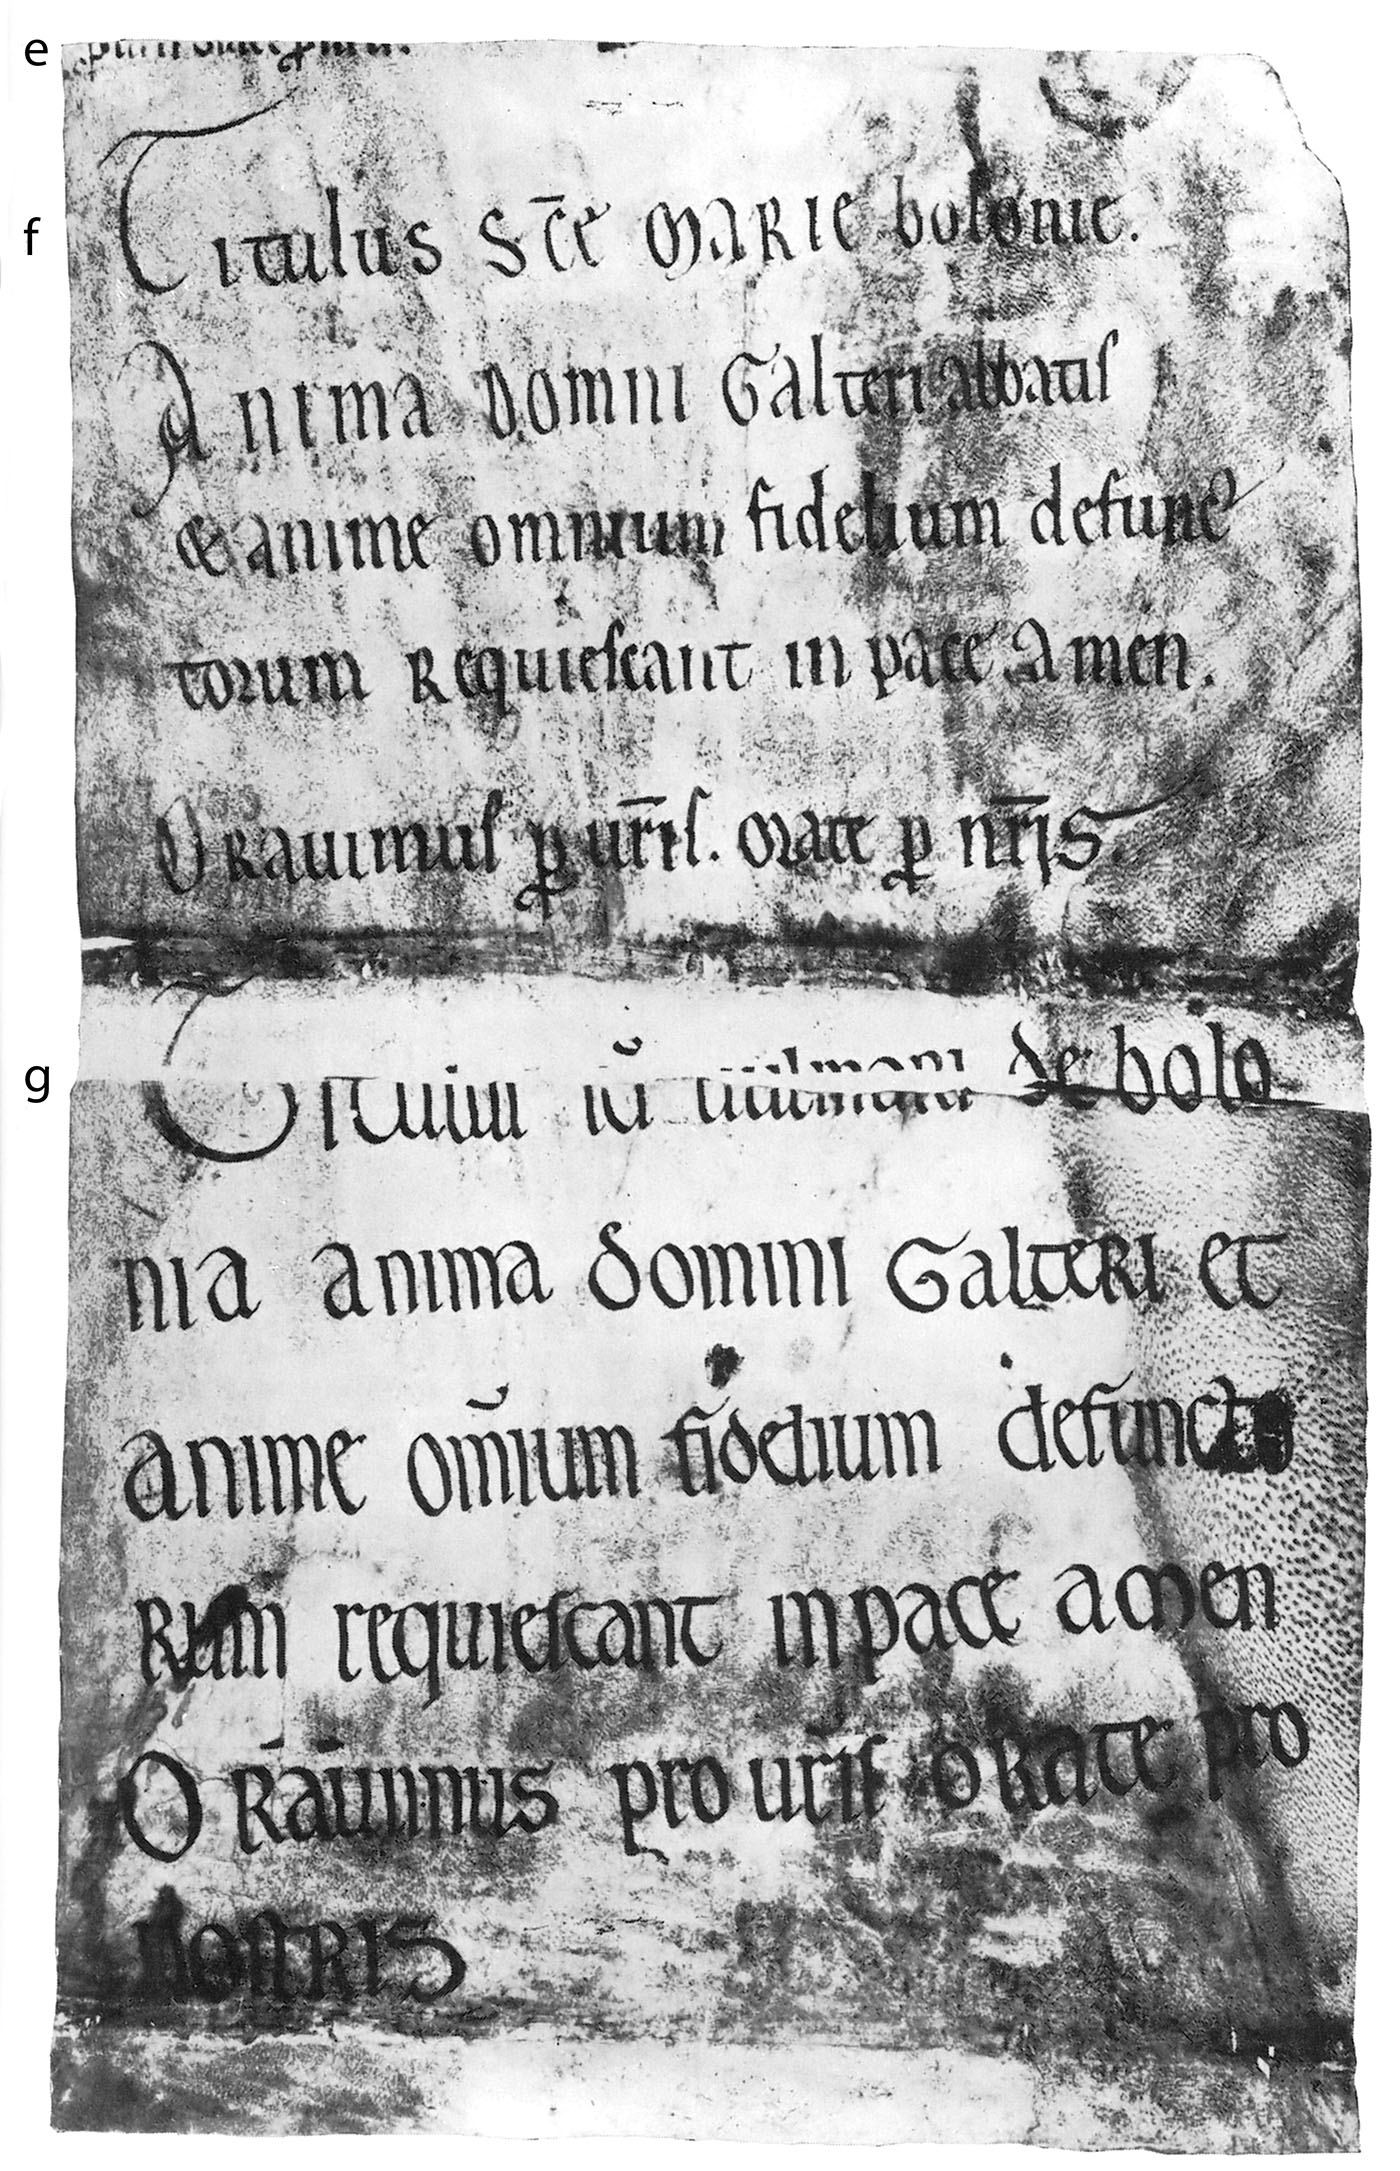 e
f
Titulus Sc̄e MARIE bolonie.
Anima domni Galteri abbatis
& anime omnium fidelium defunc
torum Requiescant in pace Amen.
ORauimus ꝑ ur̄is. orate ꝑ nr̄is.
g
de bolo
nia anima domini GalteRI et
anime om̄ium fidelium defuncto
Rum requiescant in pace amen
ORauimus pro ur̄is ORate pro
nostRIS